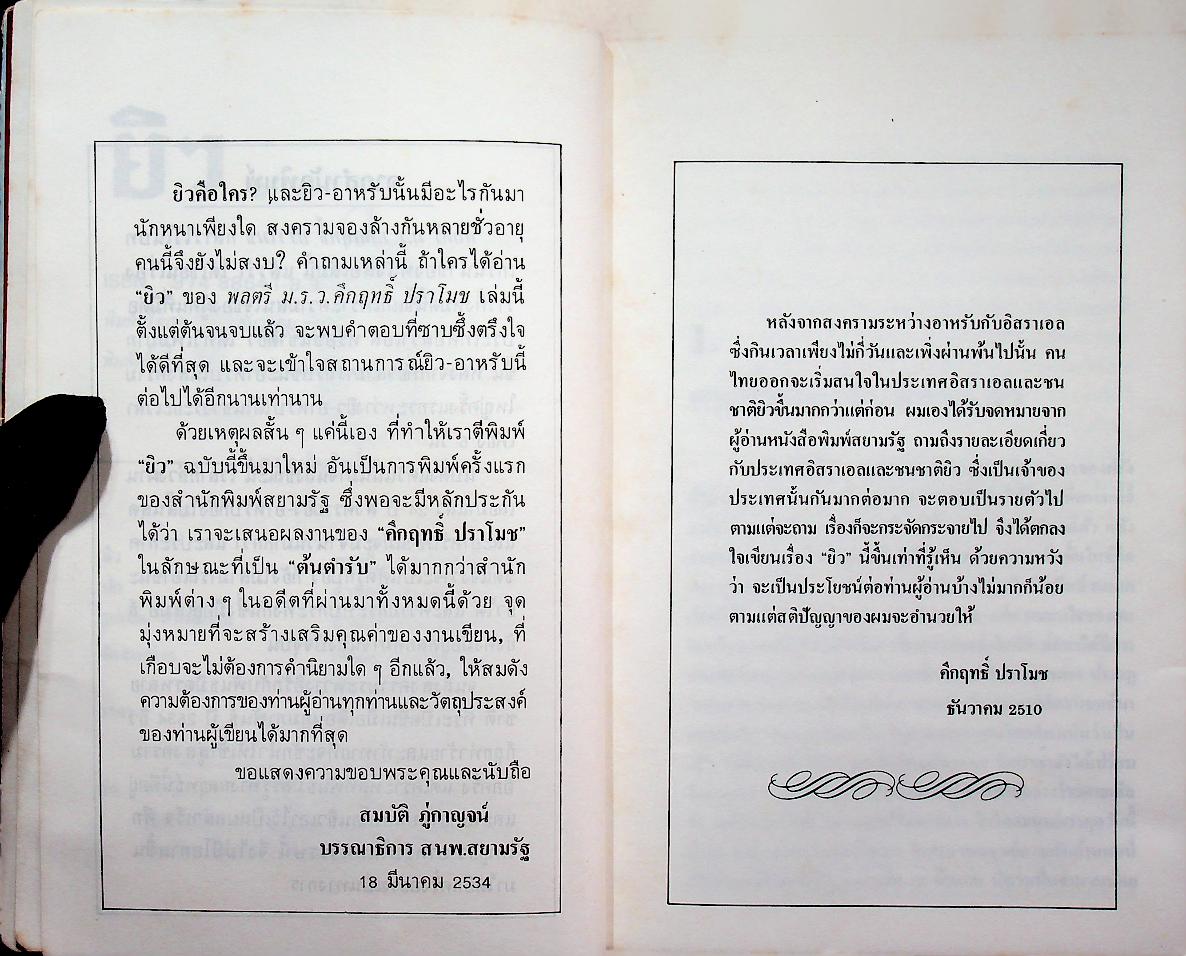 ยิวคือใคร? และยิว-อาหรับนั้นมีอะไรกันมา
นักหนาเพียงใด สงครามจองล้างกันหลายชั่วอายุ
คนนี้จึงยังไม่สงบ? คำถามเหล่านี้ ถ้าใครได้อ่าน
“ยิว” ของ พลตรี ม.ร.ว.คึกฤทธิ์ ปราโมช เล่มนี้
ตั้งแต่ต้นจนจบแล้ว จะพบคำตอบที่ซาบซึ้งตรึงใจ
ได้ดีที่สุด และจะเข้าใจสถานการณ์ยิว-อาหรับนี้
ต่อไปได้อีกนานเท่านาน
ด้วยเหตุผลสั้น ๆ แค่นี้เอง ที่ทำให้เราตีพิมพ์
“ยิว” ฉบับนี้ขึ้นมาใหม่ อันเป็นการพิมพ์ครั้งแรก
ของสำนักพิมพ์สยามรัฐ ซึ่งพอจะมีหลักประกัน
ได้ว่า เราจะเสนอผลงานของ “คึกฤทธิ์ ปราโมช”
ในลักษณะที่เป็น “ต้นตำรับ” ได้มากกว่าสำนัก
พิมพ์ต่าง ๆ ในอดีตที่ผ่านมาทั้งหมดนี้ด้วย จุด
มุ่งหมายที่จะสร้างเสริมคุณค่าของงานเขียน, ที่
เกือบจะไม่ต้องการคำนิยามใด ๆ อีกแล้ว, ให้สมดัง
ความต้องการของท่านผู้อ่านทุกท่านและวัตถุประสงค์
ของท่านผู้เขียนได้มากที่สุด
ขอแสดงความขอบพระคุณและนับถือ
สมบัติ ภู่กาญจน์
บรรณาธิการ สนพ.สยามรัฐ
18 มีนาคม 2534
หลังจากสงครามระหว่างอาหรับกับอิสราเอล
ซึ่งกินเวลาเพียงไม่กี่วันและเพิ่งผ่านพ้นไปนั้น คน
ไทยออกจะเริ่มสนใจในประเทศอิสราเอลและชน
ชาติยิวขึ้นมากกว่าแต่ก่อน ผมเองได้รับจดหมายจาก
ผู้อ่านหนังสือพิมพ์สยามรัฐ ถามถึงรายละเอียดเกี่ยว
กับประเทศอิสราเอลและชนชาติยิว ซึ่งเป็นเจ้าของ
ประเทศนั้นกันมากต่อมาก จะตอบเป็นรายตัวไป
ตามแต่จะถาม เรื่องก็จะกระจัดกระจายไป จึงได้ตกลง
ใจเขียนเรื่อง “ยิว” นี้ขึ้นเท่าที่รู้เห็น ด้วยความหวัง
ว่า จะเป็นประโยชน์ต่อท่านผู้อ่านบ้างไม่มากก็น้อย
ตามแต่สติปัญญาของผมจะอำนวยให้
คึกฤทธิ์ ปราโมช
ธันวาคม 2510